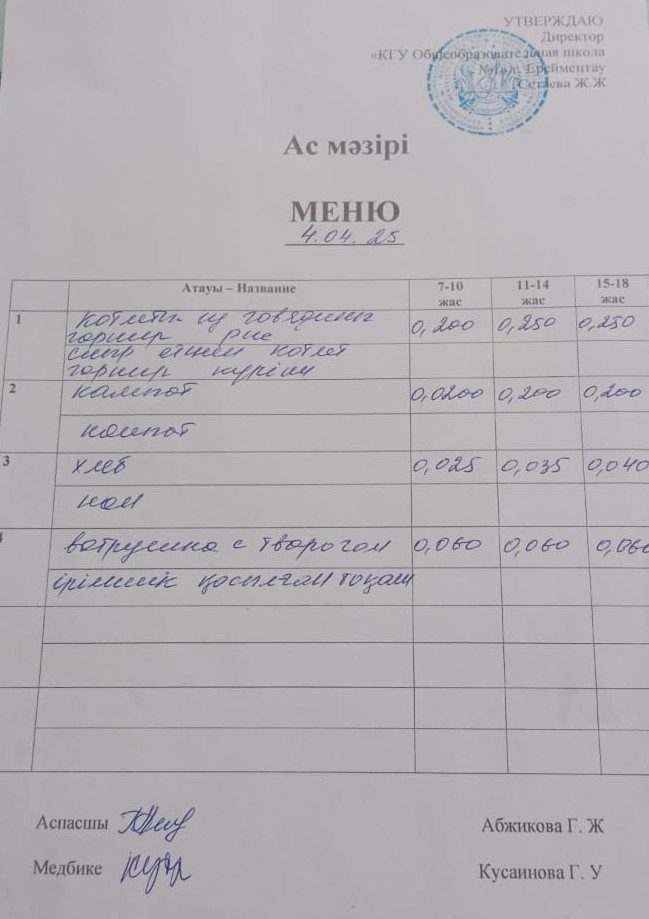 УТВЕРЖДАЮ
Директор
«КГУ Общеобразовательная школа
№1» г. Ерейментау
Сетаева Ж.Ж
Ас мәзірі
МЕНЮ
4.04.25
Атауы – Название 7-10 жас 11-14 жас 15-18 жас
1 котлеты из говядины 0,200 0,250 0,250
гарнир рис
сиыр етінен котлет
гарнир күріш
2 кампот 0,0200 0,200 0,200
компот
3 хлеб 0,025 0,035 0,040
нан
ватрушка с творогом 0,060 0,060 0,060
ірімшік қосылған тоқаш
Аспасшы Абжикова Г. Ж
Медбике Кусаинова Г. У